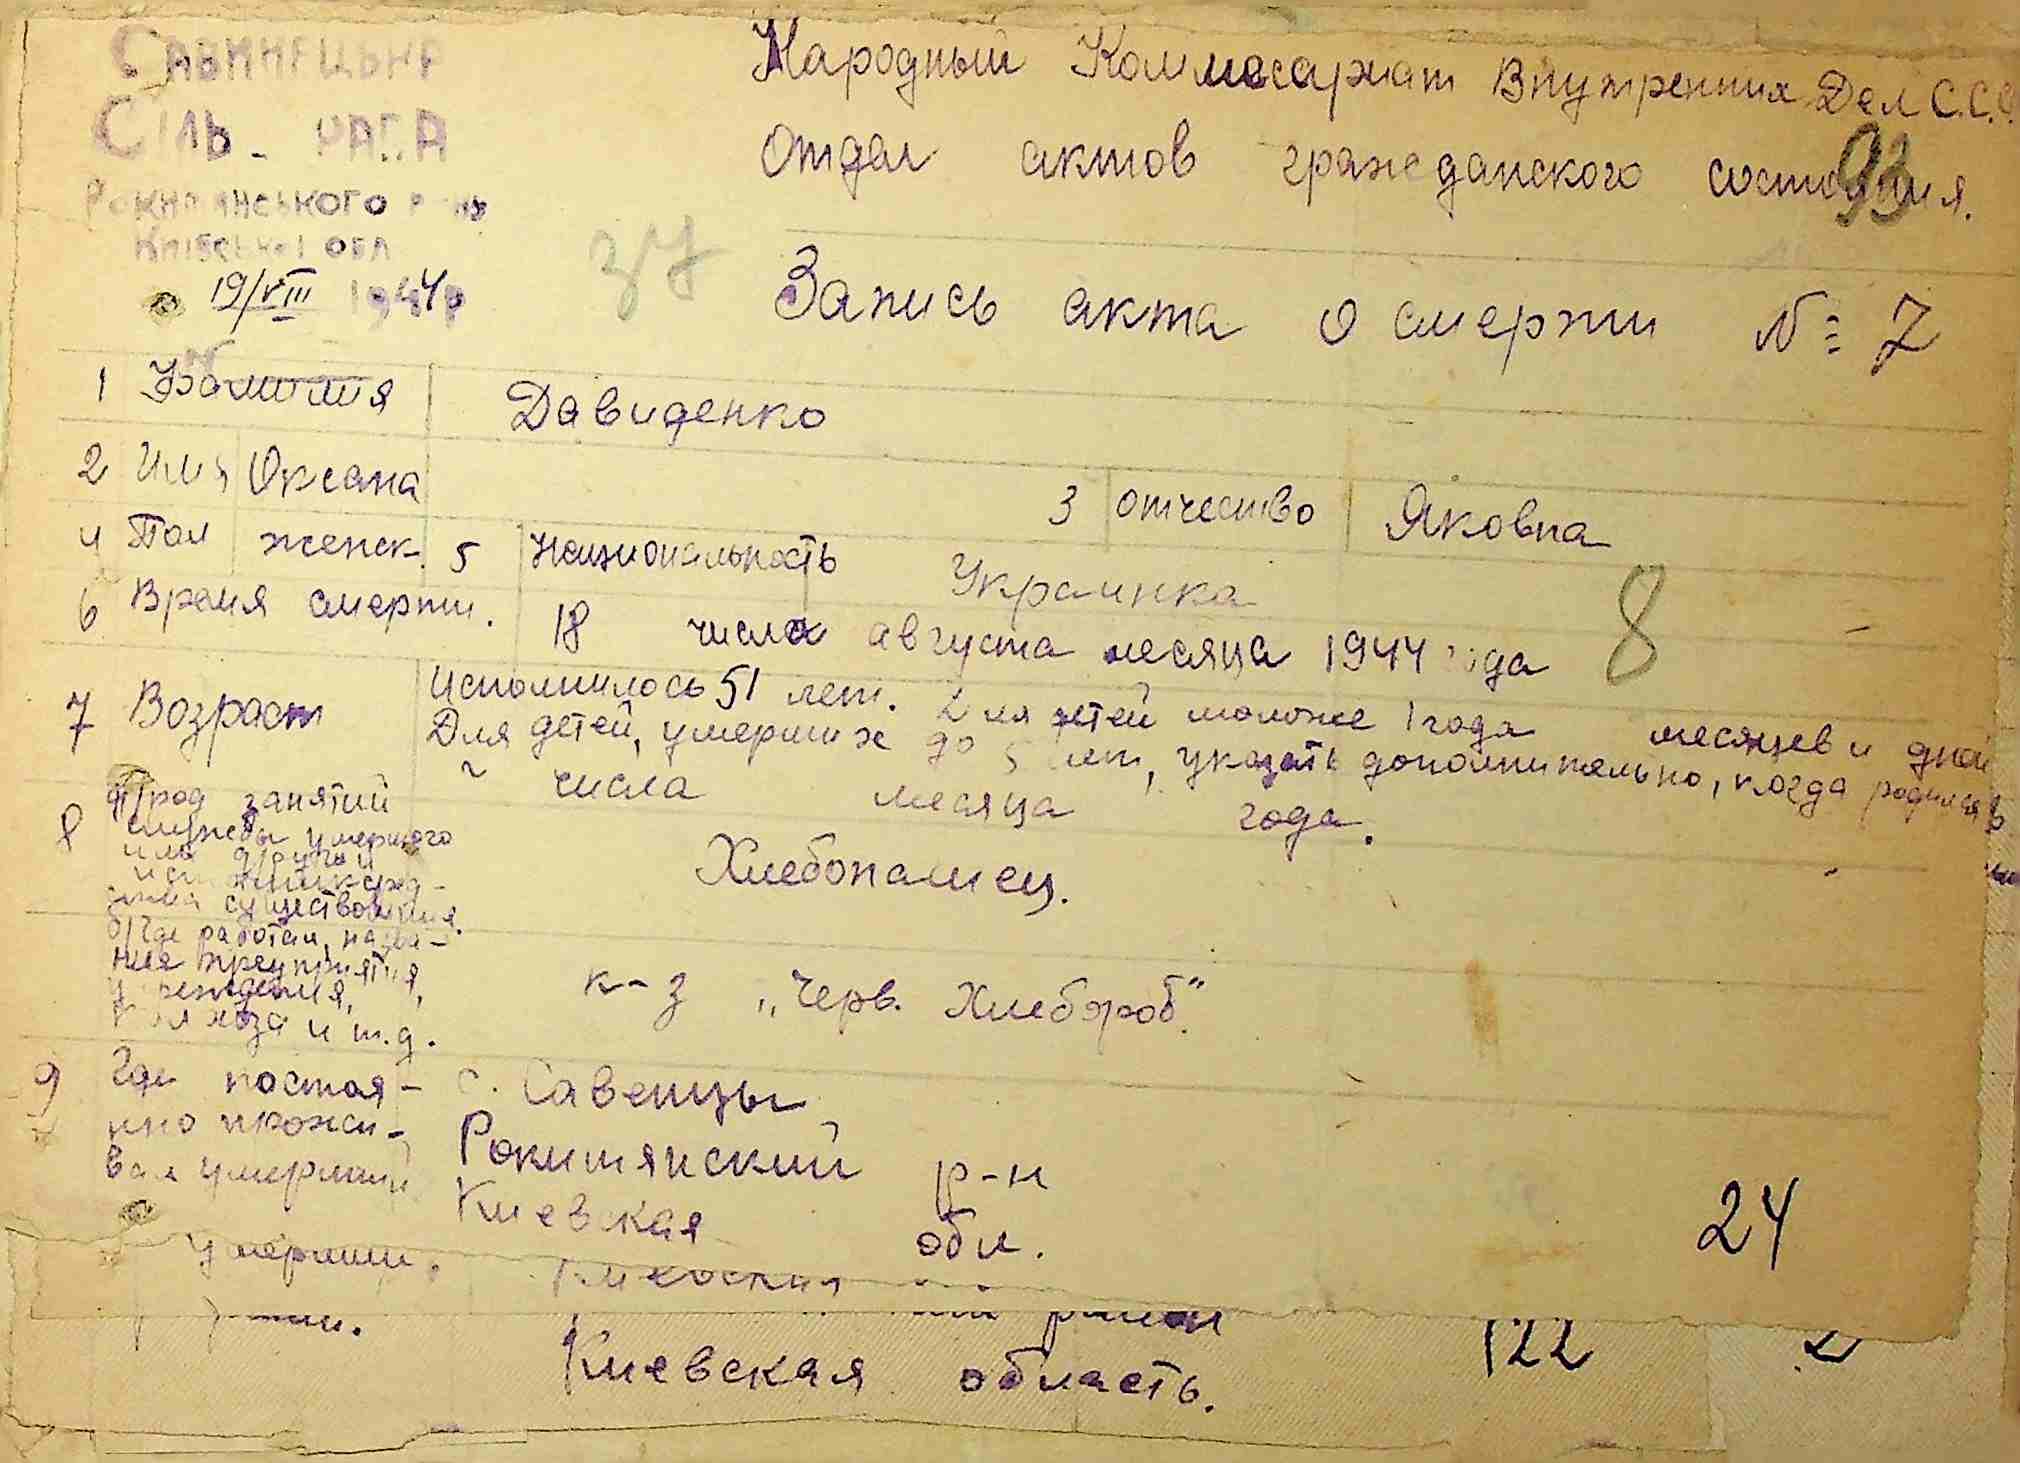 Савинецька
Сіль. рада
Рокитянського р-ну
Київської обл
19/VIII 1944 р
Народный Коммисариат Внутренних Дел С.С.
Отдел актов гражданского состояния.
93
37
Запись акта о смерти № 7
1 Фамилия Давиденко
2 Имя Оксана 3 отчество Яковна
4 Пол женск. 5 Национальность Украинка
6 Время смерти. 18 числа августа месяца 1944 года
8
7 Возраст Исполнилось 51 лет. Для детей моложе 1 года месяцев и дней
Для детей, умерших до 5 лет, указать дополнительно, когда родился
числа месяца года.
8 а) род занятий
службы умершего
или другой
источник сред-
существования.
Хлебопашец.
б) Где работал, назва-
ние предприятия,
учреждения,
колхоза и т.д.
к-з „Черв. Хлебороб."
9 Где постоя- с. Савенцы
нно прожи- Рокитянский р-н
вал умерший Киевская обл.
24
умерший.
Киевская
Киевская область.
122